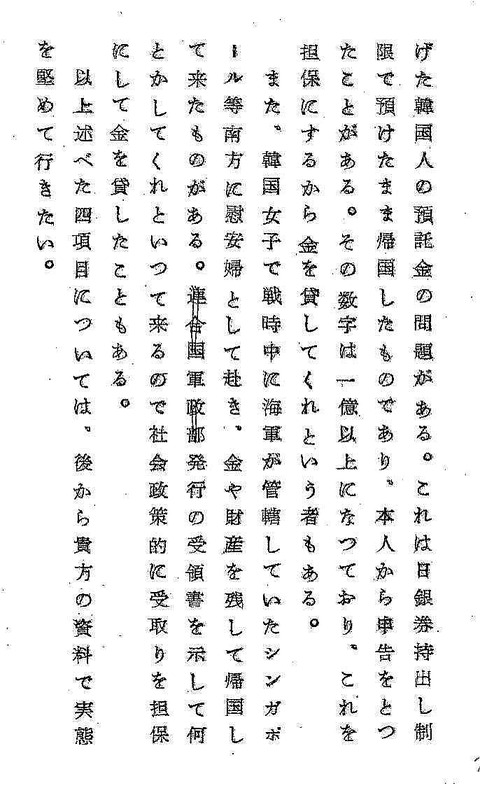 げた韓国人の預託金の問題がある。これは日銀券持出し制
限で預けたまま帰国したものであり、本人から申告をとつ
たことがある。その数字は一億以上になつており、これを
担保にするから金を貸してくれという者もある。
また、韓国女子で戦時中に海軍が管轄していたシンガポ
ール等南方に慰安婦として赴き、金や財産を残して帰国し
て来たものがある。連合国軍政部発行の受領書を示して何
とかしてくれといつて来るので社会政策的に受取りを担保
にして金を貸したこともある。
以上述べた四項目については、後から貴方の資料で実態
を堅めて行きたい。